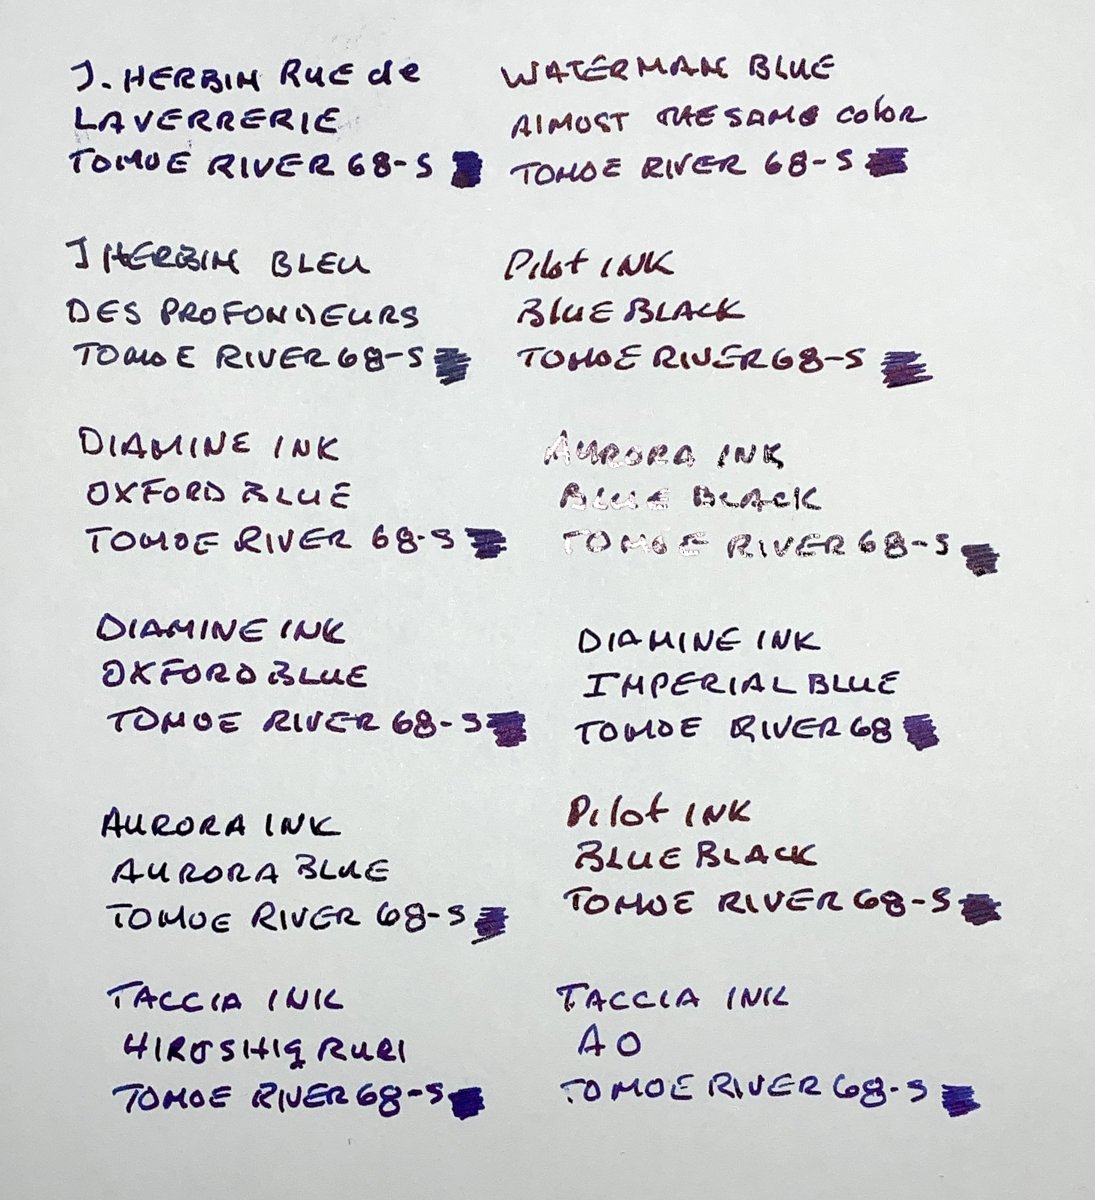 J. HERBIN RUE de
LAVERRERIE
TOMOE RIVER 68-S
WATERMAN BLUE
AlMOST THE SAME COlOR
TOMOE RIVER 68-S
J HERBIN BLEU
DES PROFONDEURS
TOMOE RIVER 68-S
Pilot INK
BlUE BLACK
TOMOE RIVER 68-S
DIAMINE INK
OXFORD BLUE
TOMOE RIVER 68-S
AURORA INK
BLUE BLACK
TOMOE RIVER 68-S
DIAMINE INK
OXFORD BLUE
TOMOE RIVER 68-S
DIAMINE INK
IMPERIAL BLUE
TOMOE RIVER 68
AURORA INK
AURORA BLUE
TOMOE RIVER 68-S
Pilot INK
BLUE BLACK
TOMOE RIVER 68-S
TACCIA INK
HIROSHIG RURI
TOMOE RIVER 68-S
TACCIA INK
AO
TOMOE RIVER 68-S